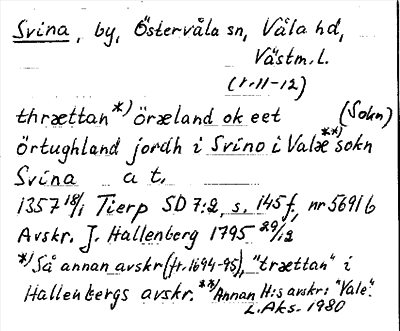 Svina, by, Östervåla sn, Våla hd,
Västm. l.
(t. 11-12)
thrættan*) öræland ok eet (Sokn)
örtughland jordh i Svino i Valæ**) sokn
Svina a t,
1357 18/1 Tierp SD 7:2, s. 145 f, nr 5691 b
Avskr. J. Hallenberg 1795 29/12
*) Så annan avskr (fr. 1694-95), "trættan" i
Hallenbergs avskr. **) Annan H:s avskr: "Vale".
L. Aks. 1980